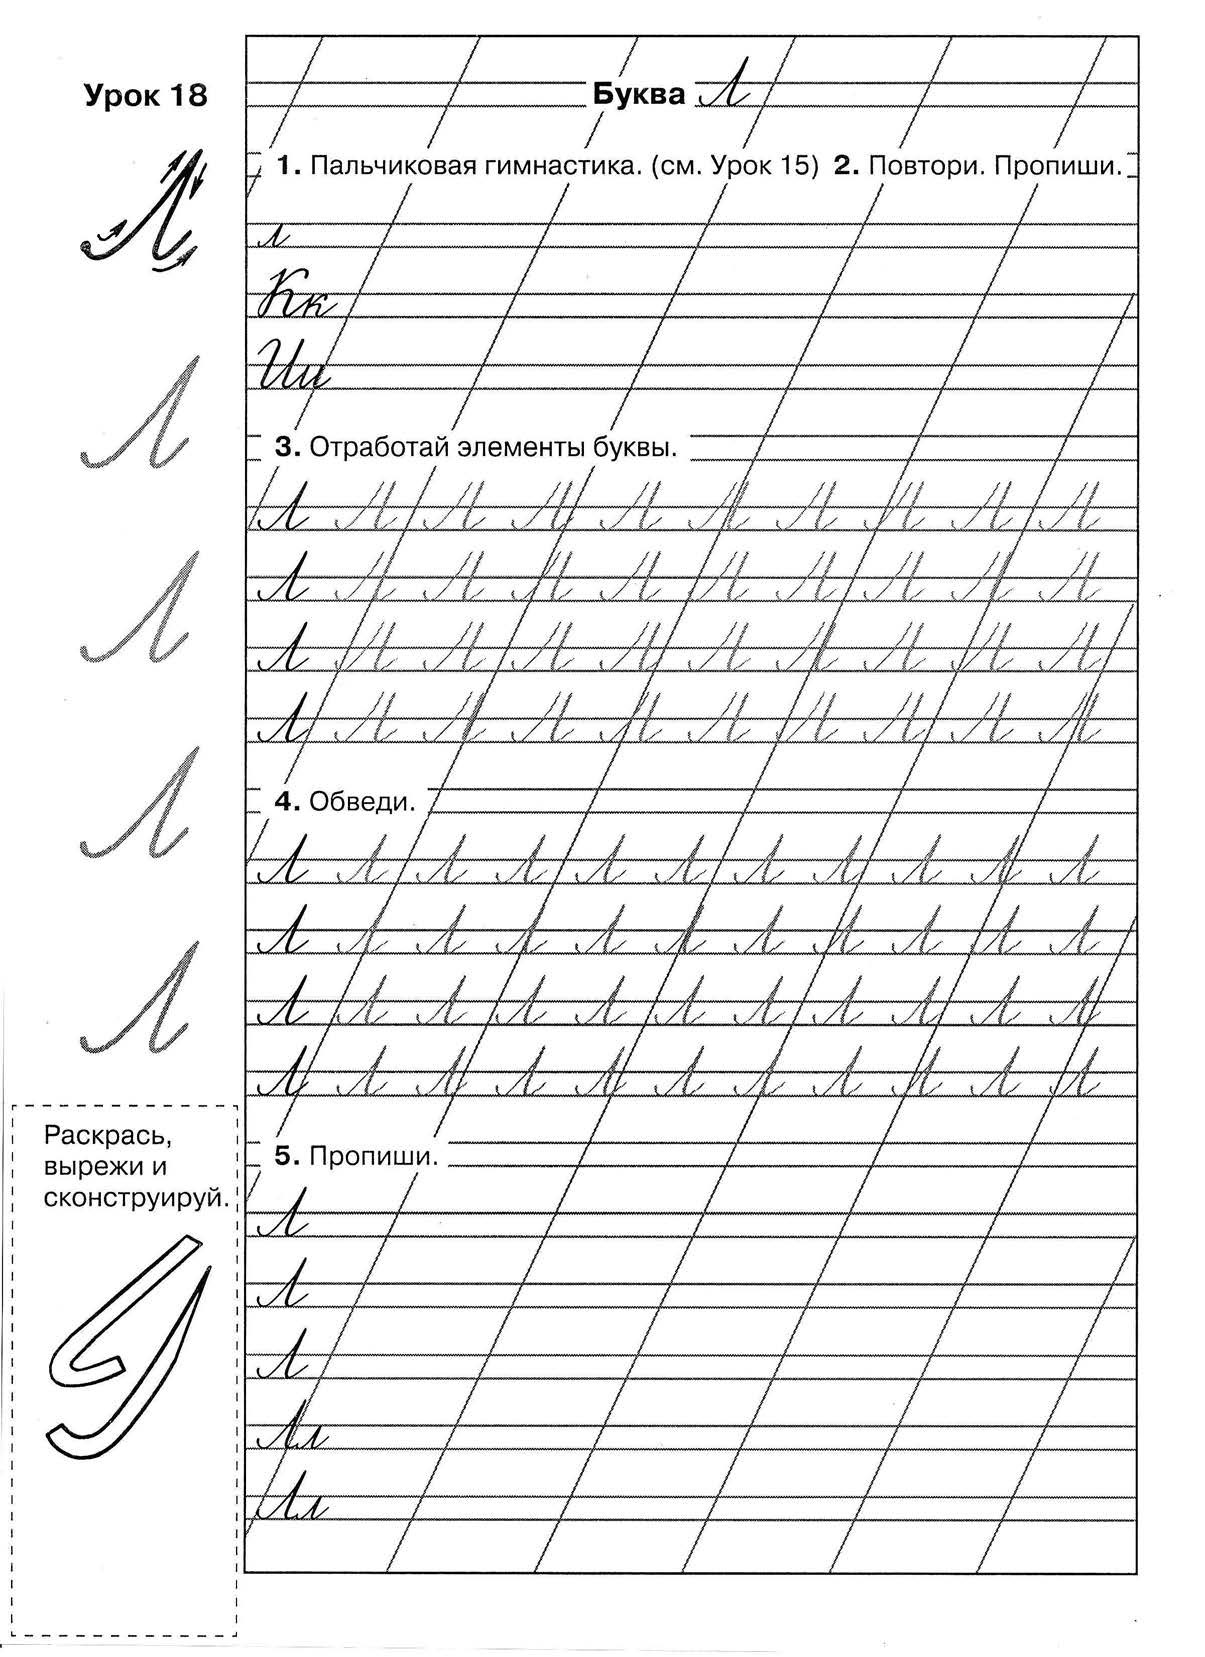 Урок 18
Буква Л
1. Пальчиковая гимнастика. (см. Урок 15) 2. Повтори. Пропиши.
л
Кк
Ии
3. Отработай элементы буквы.
Л Л Л Л Л Л Л Л Л Л
Л Л Л Л Л Л Л Л Л Л
Л Л Л Л Л Л Л Л Л Л
Л Л Л Л Л Л Л Л Л Л
4. Обведи.
Л Л Л Л Л Л Л Л Л Л Л
Л Л Л Л Л Л Л Л Л Л Л
Л Л Л Л Л Л Л Л Л Л Л
Л Л Л Л Л Л Л Л Л Л Л
5. Пропиши.
Л
Л
Л
Лл
Лл
Л
Л
Л
Л
Л
Раскрась,
вырежи и
сконструируй.